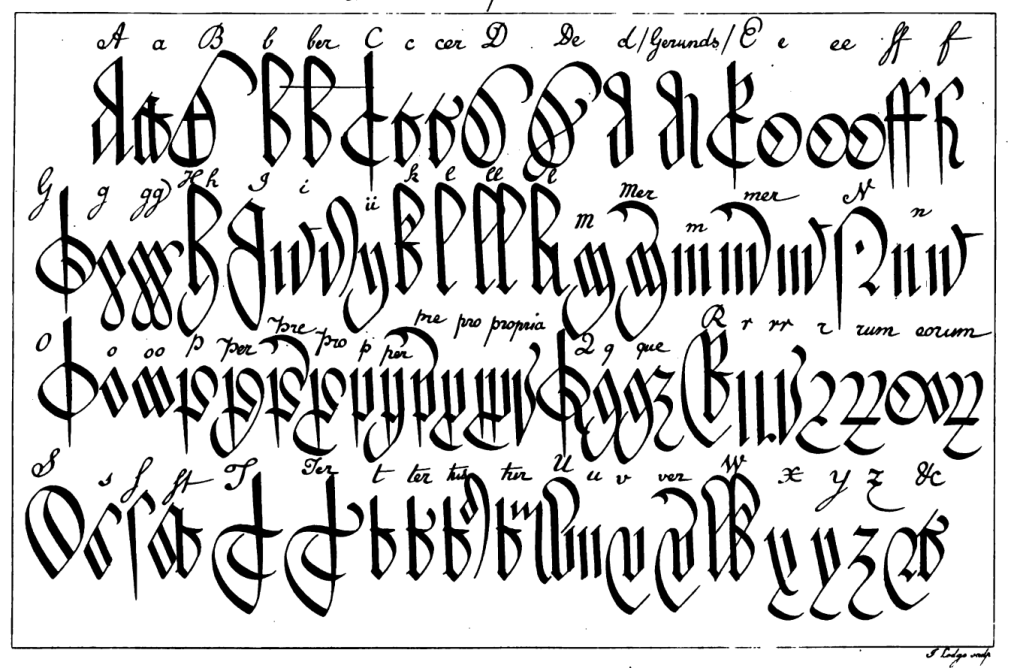 A a B b ber C c cer D De d/Gerunds/ E e ee ff f
G g gg H h I i ii k l ll M Mer m mer N n
O o oo p per pre pro p per pre pro propria Q q que R r rr r rum eorum
S s f ft T Ter t ter tus tur U u v ver W x y z &c